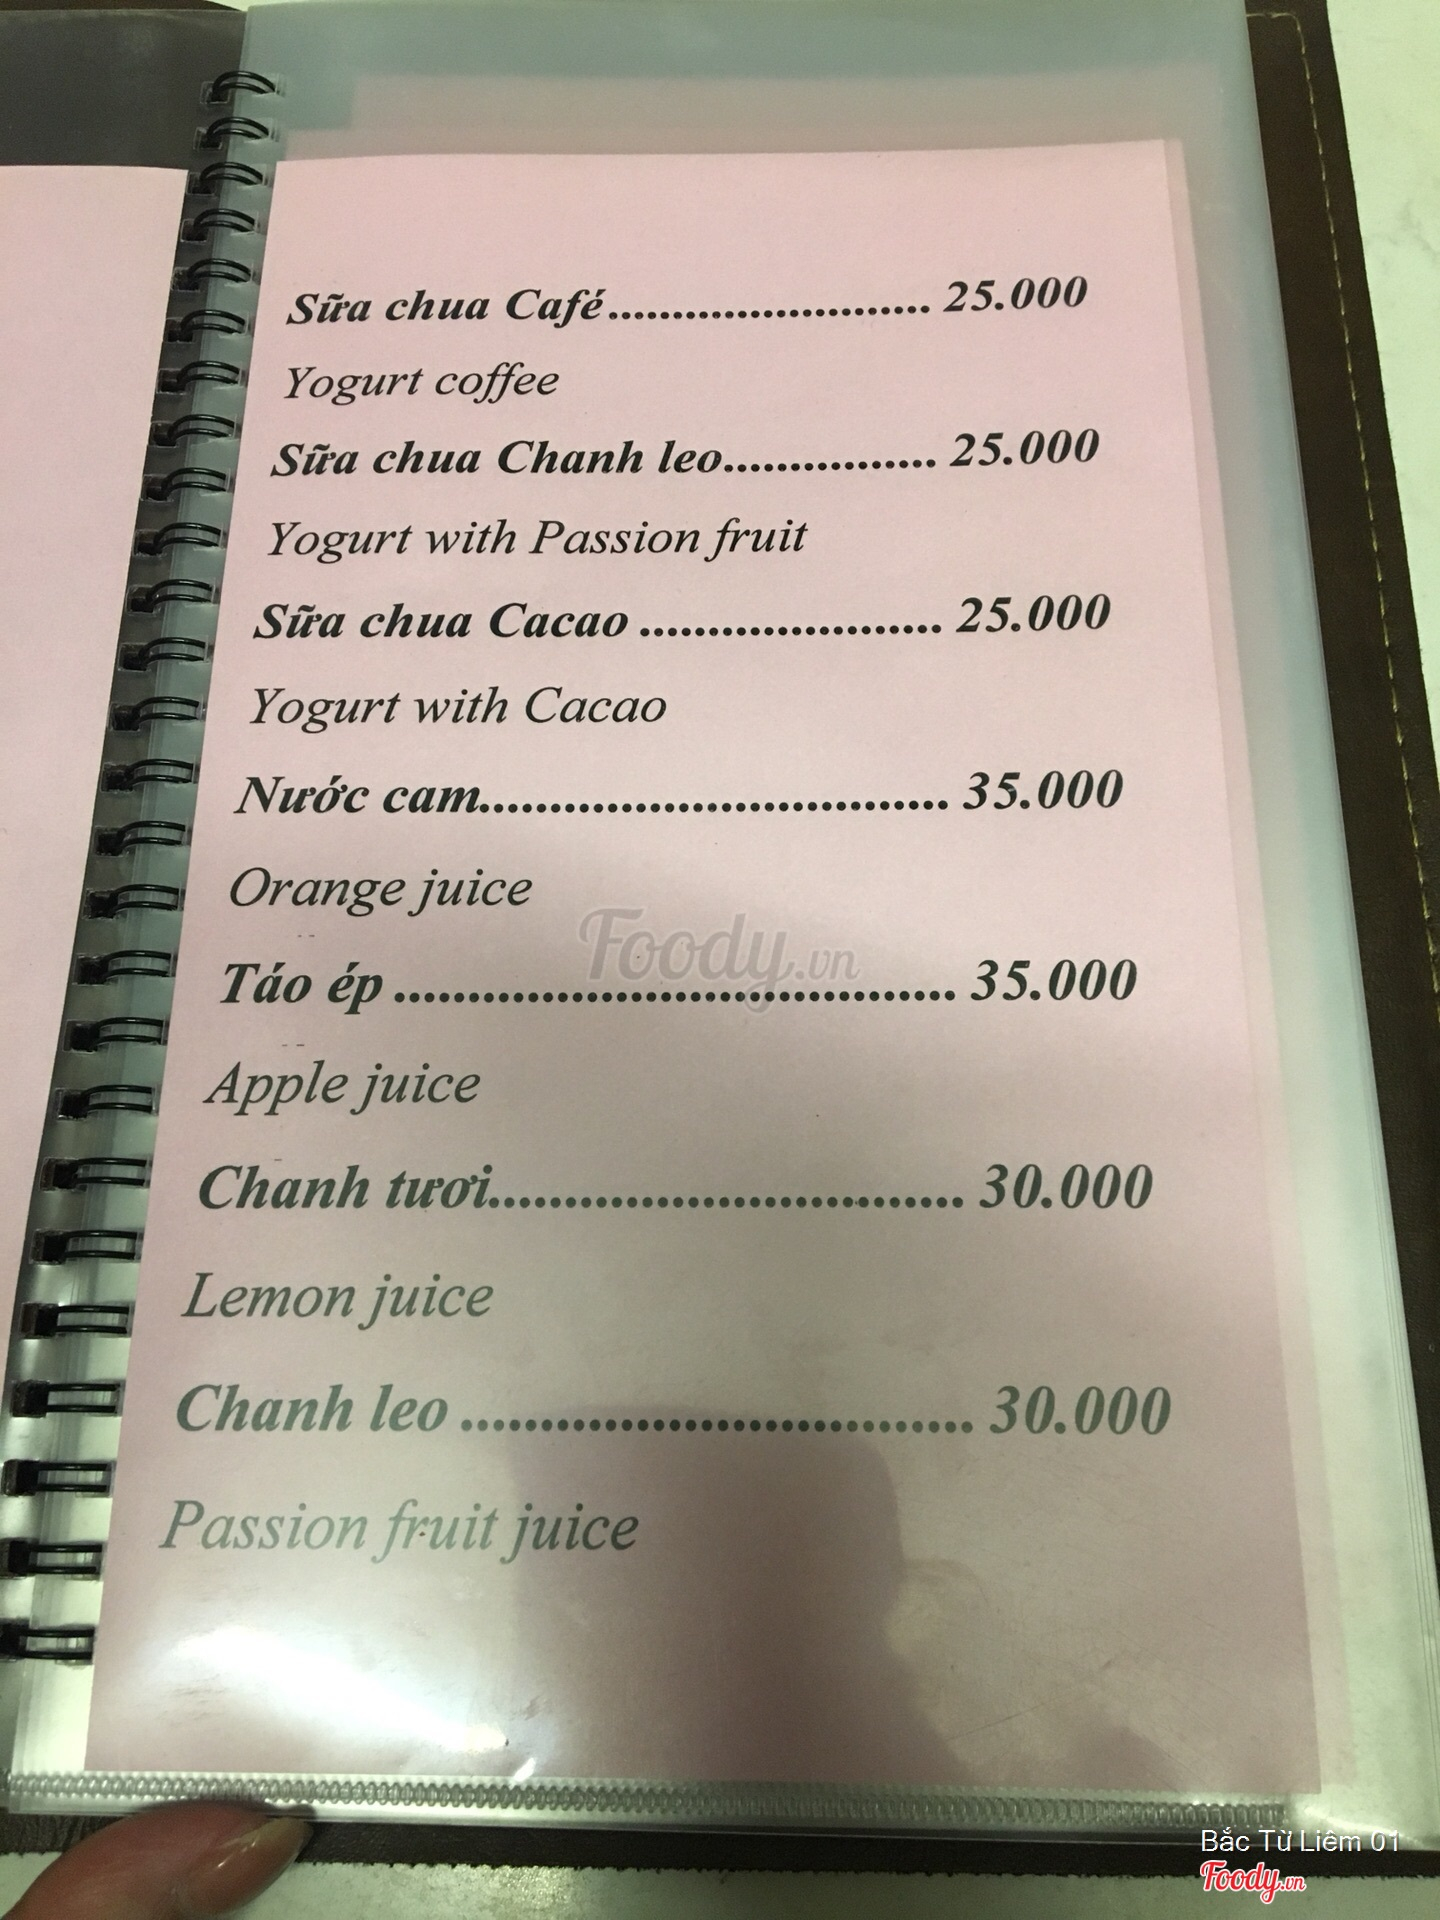 Sữa chua Café......................... 25.000
Yogurt coffee
Sữa chua Chanh leo................ 25.000
Yogurt with Passion fruit
Sữa chua Cacao ...................... 25.000
Yogurt with Cacao
Nước cam.................................. 35.000
Orange juice
Foody.vn
Táo ép ...................................... 35.000
Apple juice
Chanh tươi............................... 30.000
Lemon juice
Chanh leo ................................ 30.000
Passion fruit juice
Bắc Từ Liêm 01
Foody.vn